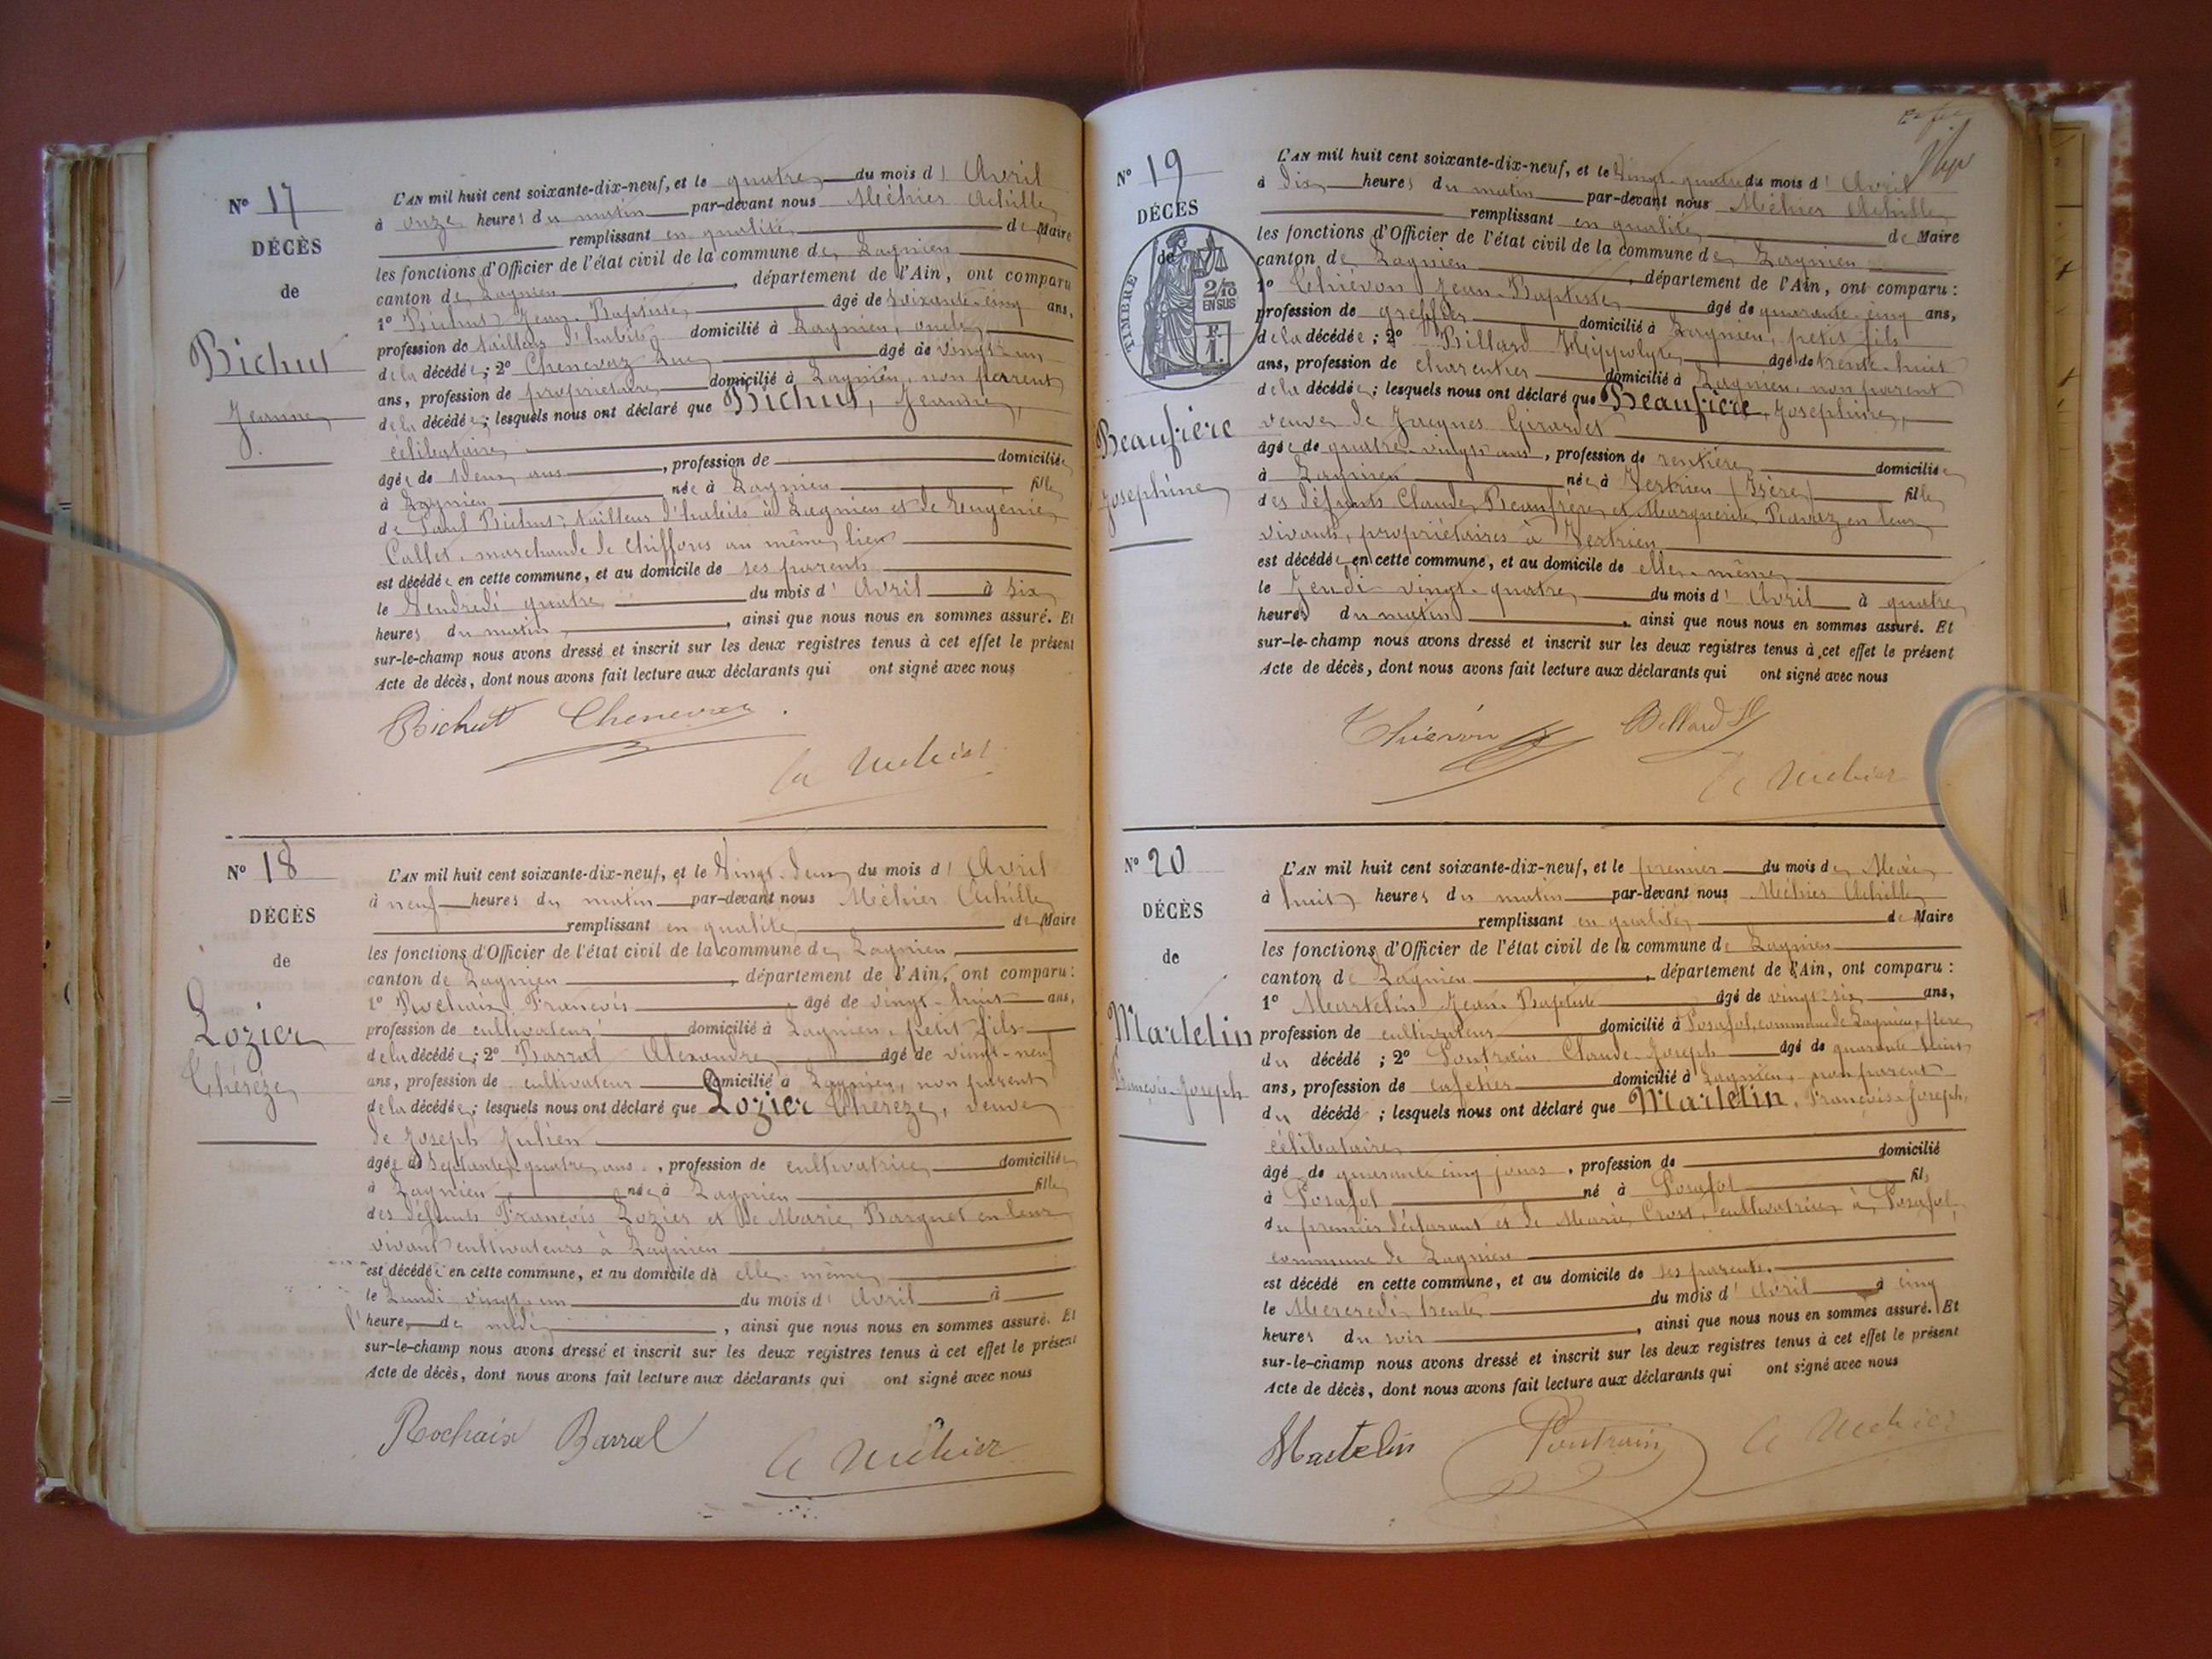 N° 17
DÉCÈS
de
Bichut
Jeanne
L'AN mil huit cent soixante-dix-neuf, et le quatre du mois d' Avril
à onze heures du matin par-devant nous Méhier Achille
remplissant en qualité de Maire
les fonctions d'Officier de l'état civil de la commune de Lagnieu
canton de Lagnieu, département de l'Ain, ont comparu
1° Bichut Jean-Baptiste âgé de soixante-cinq ans,
profession de tailleur d'habits domicilié à Lagnieu, oncle
de la décédée ; 2° Chenevaz Luc âgé de vingt-un
ans, profession de propriétaire domicilié à Lagnieu, non parent
de la décédée ; lesquels nous ont déclaré que Bichut, Jeanne,
célibataire
âgée de deux ans, profession de domiciliée
à Lagnieu née à Lagnieu fille
de Paul Bichut, tailleur d'habits à Lagnieu et de Eugénie
Callet, marchande de chiffons au même lieu
est décédée en cette commune, et au domicile de ses parents
le Vendredi quatre du mois d' Avril à six
heures du matin, ainsi que nous nous en sommes assuré. Et
sur-le-champ nous avons dressé et inscrit sur les deux registres tenus à cet effet le présent
Acte de décès, dont nous avons fait lecture aux déclarants qui ont signé avec nous
Bichut Chenevaz
A Méhier
N° 18
DÉCÈS
de
Lozier
Thérèze
L'AN mil huit cent soixante-dix-neuf, et le Vingt-deux du mois d' Avril
à neuf heures du matin par-devant nous Méhier Achille
remplissant en qualité de Maire
les fonctions d'Officier de l'état civil de la commune de Lagnieu,
canton de Lagnieu, département de l'Ain, ont comparu :
1° Rochaix François, âgé de vingt-huit ans,
profession de cultivateur domicilié à Lagnieu, petit-fils
de la décédée ; 2° Barral Alexandre âgé de vingt-neuf
ans, profession de cultivateur domicilié à Lagnieu, non parent
de la décédée ; lesquels nous ont déclaré que Lozier Thérèze, veuve
de Joseph Julien
âgée de septante-quatre ans, profession de cultivatrice domiciliée
à Lagnieu née à Lagnieu fille
des défunts François Lozier et de Marie Barquet en leur
vivant cultivateurs à Lagnieu
est décédée en cette commune, et au domicile de elle-même
le Lundi vingt-un du mois d' Avril à
l'heure de midi, ainsi que nous nous en sommes assuré. Et
sur-le-champ nous avons dressé et inscrit sur les deux registres tenus à cet effet le présent
Acte de décès, dont nous avons fait lecture aux déclarants qui ont signé avec nous
Rochaix Barral
A Méhier
N° 19
DÉCÈS
de
TIMBRE
2/10
EN SUS
F.
1.
Beaufrère
Joséphine
L'AN mil huit cent soixante-dix-neuf, et le Vingt-quatre du mois d' Avril
à dix heures du matin par-devant nous Méhier Achille
remplissant en qualité de Maire
les fonctions d'Officier de l'état civil de la commune de Lagnieu
canton de Lagnieu, département de l'Ain, ont comparu :
1° Thiévon Jean-Baptiste âgé de quarante-cinq ans,
profession de greffier domicilié à Lagnieu, petit-fils
de la décédée ; 2° Billard Hippolyte âgé de trente-huit
ans, profession de charentier domicilié à Lagnieu, non parent
de la décédée ; lesquels nous ont déclaré que Beaufrère, Joséphine,
veuve de Jacques Girardet
âgée de quatre-vingts ans, profession de rentière domiciliée
à Lagnieu née à Vertrieu (Isère) fille
des défunts Claude Beaufrère et Marguerite Ravez en leur
vivants, propriétaires à Vertrieu
est décédée en cette commune, et au domicile de elle-même
le Jeudi vingt-quatre du mois d' Avril à quatre
heures du matin, ainsi que nous nous en sommes assuré. Et
sur-le-champ nous avons dressé et inscrit sur les deux registres tenus à cet effet le présent
Acte de décès, dont nous avons fait lecture aux déclarants qui ont signé avec nous
Thiévon Billard
A Méhier
N° 20
DÉCÈS
de
Martelin
François-Joseph
L'AN mil huit cent soixante-dix-neuf, et le premier du mois de Mai
à huit heures du matin par-devant nous Méhier Achille
remplissant en qualité de Maire
les fonctions d'Officier de l'état civil de la commune de Lagnieu
canton de Lagnieu, département de l'Ain, ont comparu :
1° Martelin Jean-Baptiste âgé de vingt-six ans,
profession de cultivateur domicilié à Posafol, commune de Lagnieu, père
du décédé ; 2° Poutrain Claude-Joseph âgé de quarante-huit
ans, profession de cafetier domicilié à Lagnieu, non parent
du décédé ; lesquels nous ont déclaré que Martelin, François-Joseph,
célibataire
âgé de quarante-cinq jours, profession de domicilié
à Posafol né à Posafol fils
du premier déclarant et de Marie Crost, cultivatrice à Posafol,
commune de Lagnieu
est décédé en cette commune, et au domicile de ses parents.
le Mercredi trente du mois d' Avril à cinq
heures du soir, ainsi que nous nous en sommes assuré. Et
sur-le-champ nous avons dressé et inscrit sur les deux registres tenus à cet effet le présent
Acte de décès, dont nous avons fait lecture aux déclarants qui ont signé avec nous
Martelin Poutrain A Méhier